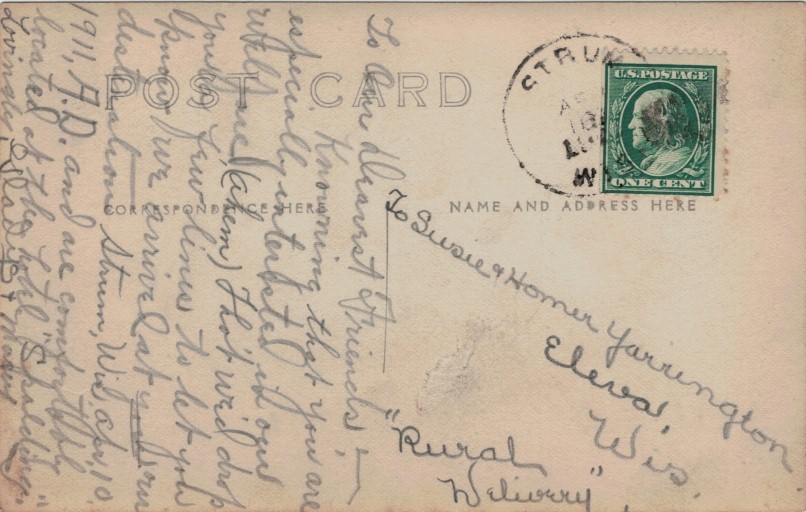 POST CARD
CORRESPONDENCE HERE
NAME AND ADDRESS HERE
U.S. POSTAGE
ONE CENT
STRUM
WIS
To Our Dearest Friends —
Knowing that you are
especially interested in our
welfare (ahem) tho't we'd drop
you a few lines to let you
know we arrived at our
destination Strum, Wis, apr. 10,
1911, A.D. and are comfortably
located at the hotel "Spalding."
Lovingly,
To Susie & Homer Yarrington
Eleva,
Wis.
"Rural
Delivery",